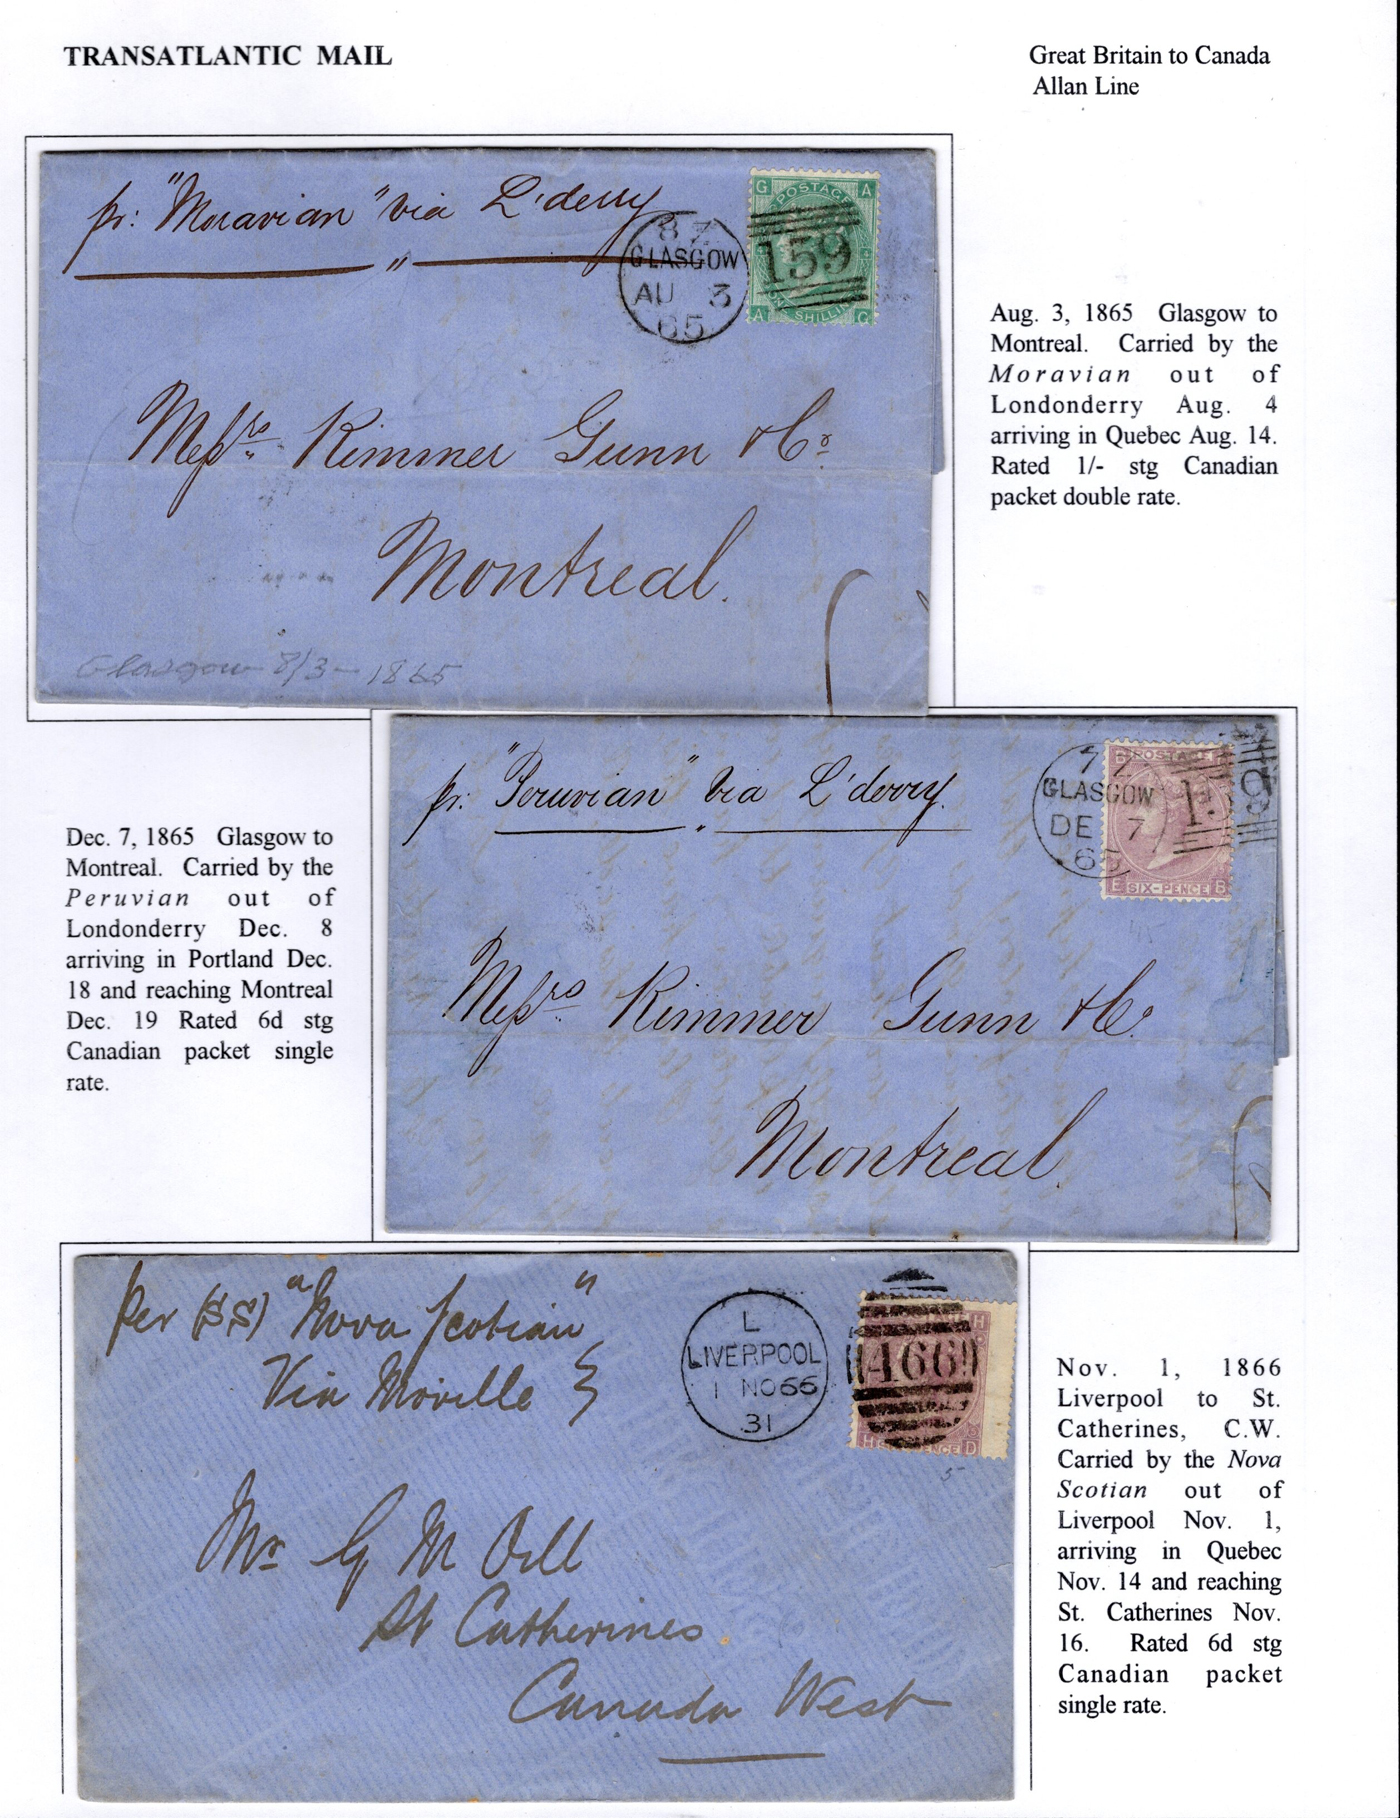 TRANSATLANTIC MAIL
Great Britain to Canada
Allan Line
pr: "Moravian" via L'derry
8 Z
GLASGOW
AU 3
65
G A
POSTAGE
159
ONE SHILLING
A G
Messrs Rimmer Gunn & Co
Montreal.
Glasgow 8/3-1865
Aug. 3, 1865 Glasgow to
Montreal. Carried by the
Moravian out of
Londonderry Aug. 4
arriving in Quebec Aug. 14.
Rated 1/- stg Canadian
packet double rate.
pr. "Peruvian" via L'derry.
7 Z
GLASGOW
DE 7
65
B POSTAGE
SIX-PENCE
E B
Messrs Rimmer Gunn & Co
Montreal
Dec. 7, 1865 Glasgow to
Montreal. Carried by the
Peruvian out of
Londonderry Dec. 8
arriving in Portland Dec.
18 and reaching Montreal
Dec. 19 Rated 6d stg
Canadian packet single
rate.
Per (SS) "Nova Scotian"
Via Moville
L
LIVERPOOL
1 NO 66
31
H
466
H D
Mr G M Orll
St Catherines
Canada West
Nov. 1, 1866
Liverpool to St.
Catherines, C.W.
Carried by the Nova
Scotian out of
Liverpool Nov. 1,
arriving in Quebec
Nov. 14 and reaching
St. Catherines Nov.
16. Rated 6d stg
Canadian packet
single rate.